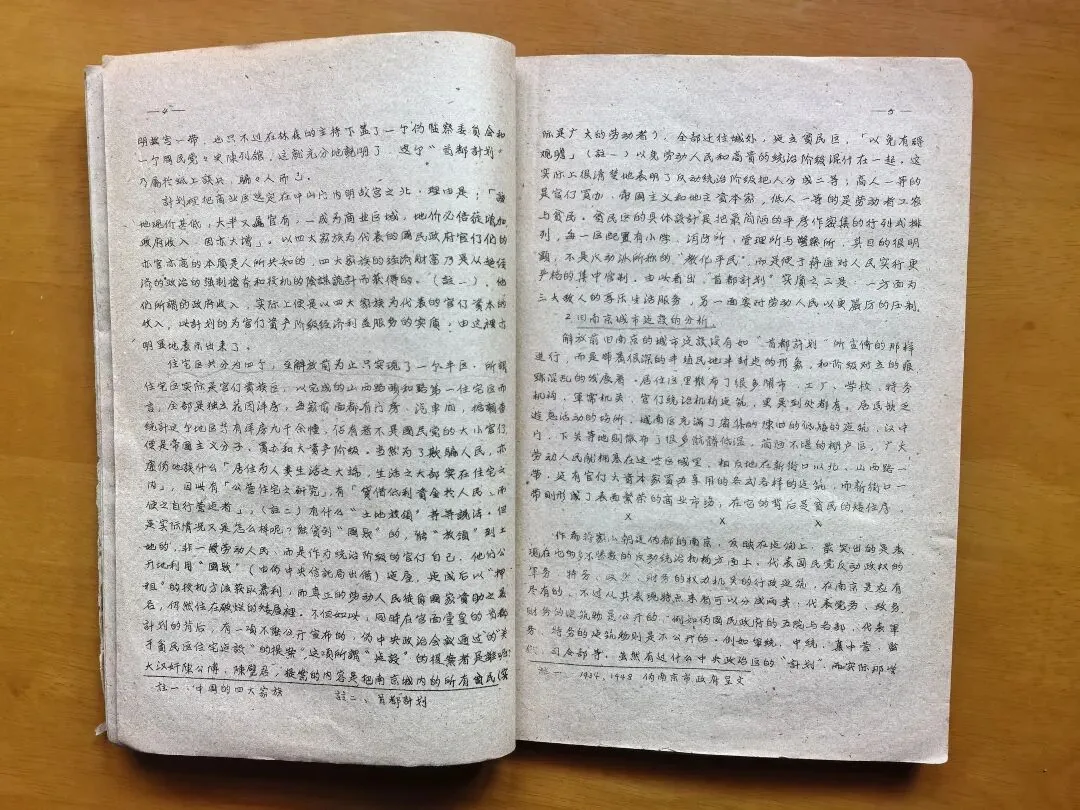 —4—
明故宫一带，也只不过在林森的主持下盖了一个伪监察委员会和
一个国民党党史陈列馆，这就充分地说明了，这个“首都计划”
乃属于纸上谈兵，骗骗人而已。
计划观把商业区选定在中山门内明故宫之北，理由是：「该
地现价甚低，大半又属官有，一成为商业区域，地价必倍蓰增加，
政府收入，因亦大增」。以四大家族为代表的国民政府官们们的
亦官亦商的本质是人所共知的，四大家族的经济财富乃是从超经
济的政治的强制掠夺和投机的阴谋诡计而获得的。（註一）、他
们所谓的政府收入，实际上便是以四大家族为代表的官们资本的
收入，此计划的为官们资产阶级经济利益服务的实质，由这裡亦
明显地表示出来了。
住宅区共分为四个，至解放前为止只实现了一个半区，所谓
住宅区实际是官们贵族区，以完成的山西路颐和路第一住宅区而
言，全部是独立花园洋房，每家前面都有门房、汽车间，据调查
统计这个地区共有洋房九千余幢，佔有者不是国民党的大小官们
便是帝国主义分子、买办和大资产阶级。当然为了欺骗人民，亦
虚伪地谈什么“居住为人类生活之大端，生活之大部实在住宅之
内」，因此有「公营住宅之研究」，有「贷借低利资金于人民，而
使之自行营造者」，（註二）有什么“土地放领”等等魏语。但
是实际情况又是怎么样呢？能贷到“国贱”的，能“放领”到土
地的，非一般劳动人民，而是作为统治阶级的官们自己，他们公
开地利用“国贱”（由伪中央信託局出借）造屋，造成后以“押
租”的投机方法获取暴利，而真正的劳动人民徒有国家资助之美
名，仍然住在破烂的矮屋裡。不但如此，同时在官面堂皇的首都
计划的背后，有一项不能公开宣布的，伪中央政治会议通过的“关
于贫民区住宅建设”的提案“这项所谓“建设”的提案者是鼎鼎
大汉奸陈公博，陈璧君，提案的内容是把南京城内的所有贫民（实
註一：中国的四大家族　註二、首都計划
—5—
际是广大的劳动者），全部迁往城外，建立贫民区，「以免有碍
观瞻」（註一）以免劳动人民和高贵的统治阶级混什在一起。这
实际上很清楚地表明了反动统治阶级把人分成二等；高人一等的
是官们买办、帝国主义和地主资本家，低人一等的是劳动者工农
与贫民。贫民区的具体設计是把最简陋的平房作密集的行列式排
列，每一区配置有小学、消防所、管理所与警察所，其目的很明
显，不是反动派所称的“教化平民”，而是便于将区对人民实行更
严格的集中管制。由此看出，“首都计划”实质之三是：一方面为
三大敌人的享乐生活服务，另一面实对劳动人民以更严厉的压制。
2.旧南京城市建設的分析。
解放前旧南京的城市建設没有如“首都计划”所宣传的那样
进行，而是带着很深的半殖民地半封建的形象，和阶级对立的痕
跡混乱的发展着。居住区里散布了很多闹市、工厂、学校、特务
机构，軍需机关，官们统治机构建筑，更是到处都有。居民缺乏
游憩活动的场所，城南区充满了密集的陈旧的低矮的建筑，汉中
门、下关等地则散布了很多骯髒低湿、简陋不堪的棚户区，广大
劳动人民则拥挤在这些区域里，相反地在新街口以北、山西路一
带，造有官们大资本家买办享用的各式各样的建筑，而新街口一
带则形成了表面繁荣的商业市场，在它的背后是贫民的矮住房。
x　x　x
作为蒋家小朝廷伪都的南京，反映在建筑上，最突出的是表
现在它的多不胜数的反动统治机构方面上，代表国民党反动政权的
军务、特务、政务、财务的权力机关的行政建筑，在南京是应有
尽有的，不过从其表现特点来看可以分成两类：代表党务、政务、
财务的建筑物是公开的，例如伪国民政府的五院与各部，代表軍
务、特务的建筑物则是不公开的。例如軍统、中统、集中营、监
狱、司令部等。虽然有过什么中央政治区的“计划”，而实际那些
註一　1934，1948 伪南京市政府呈文